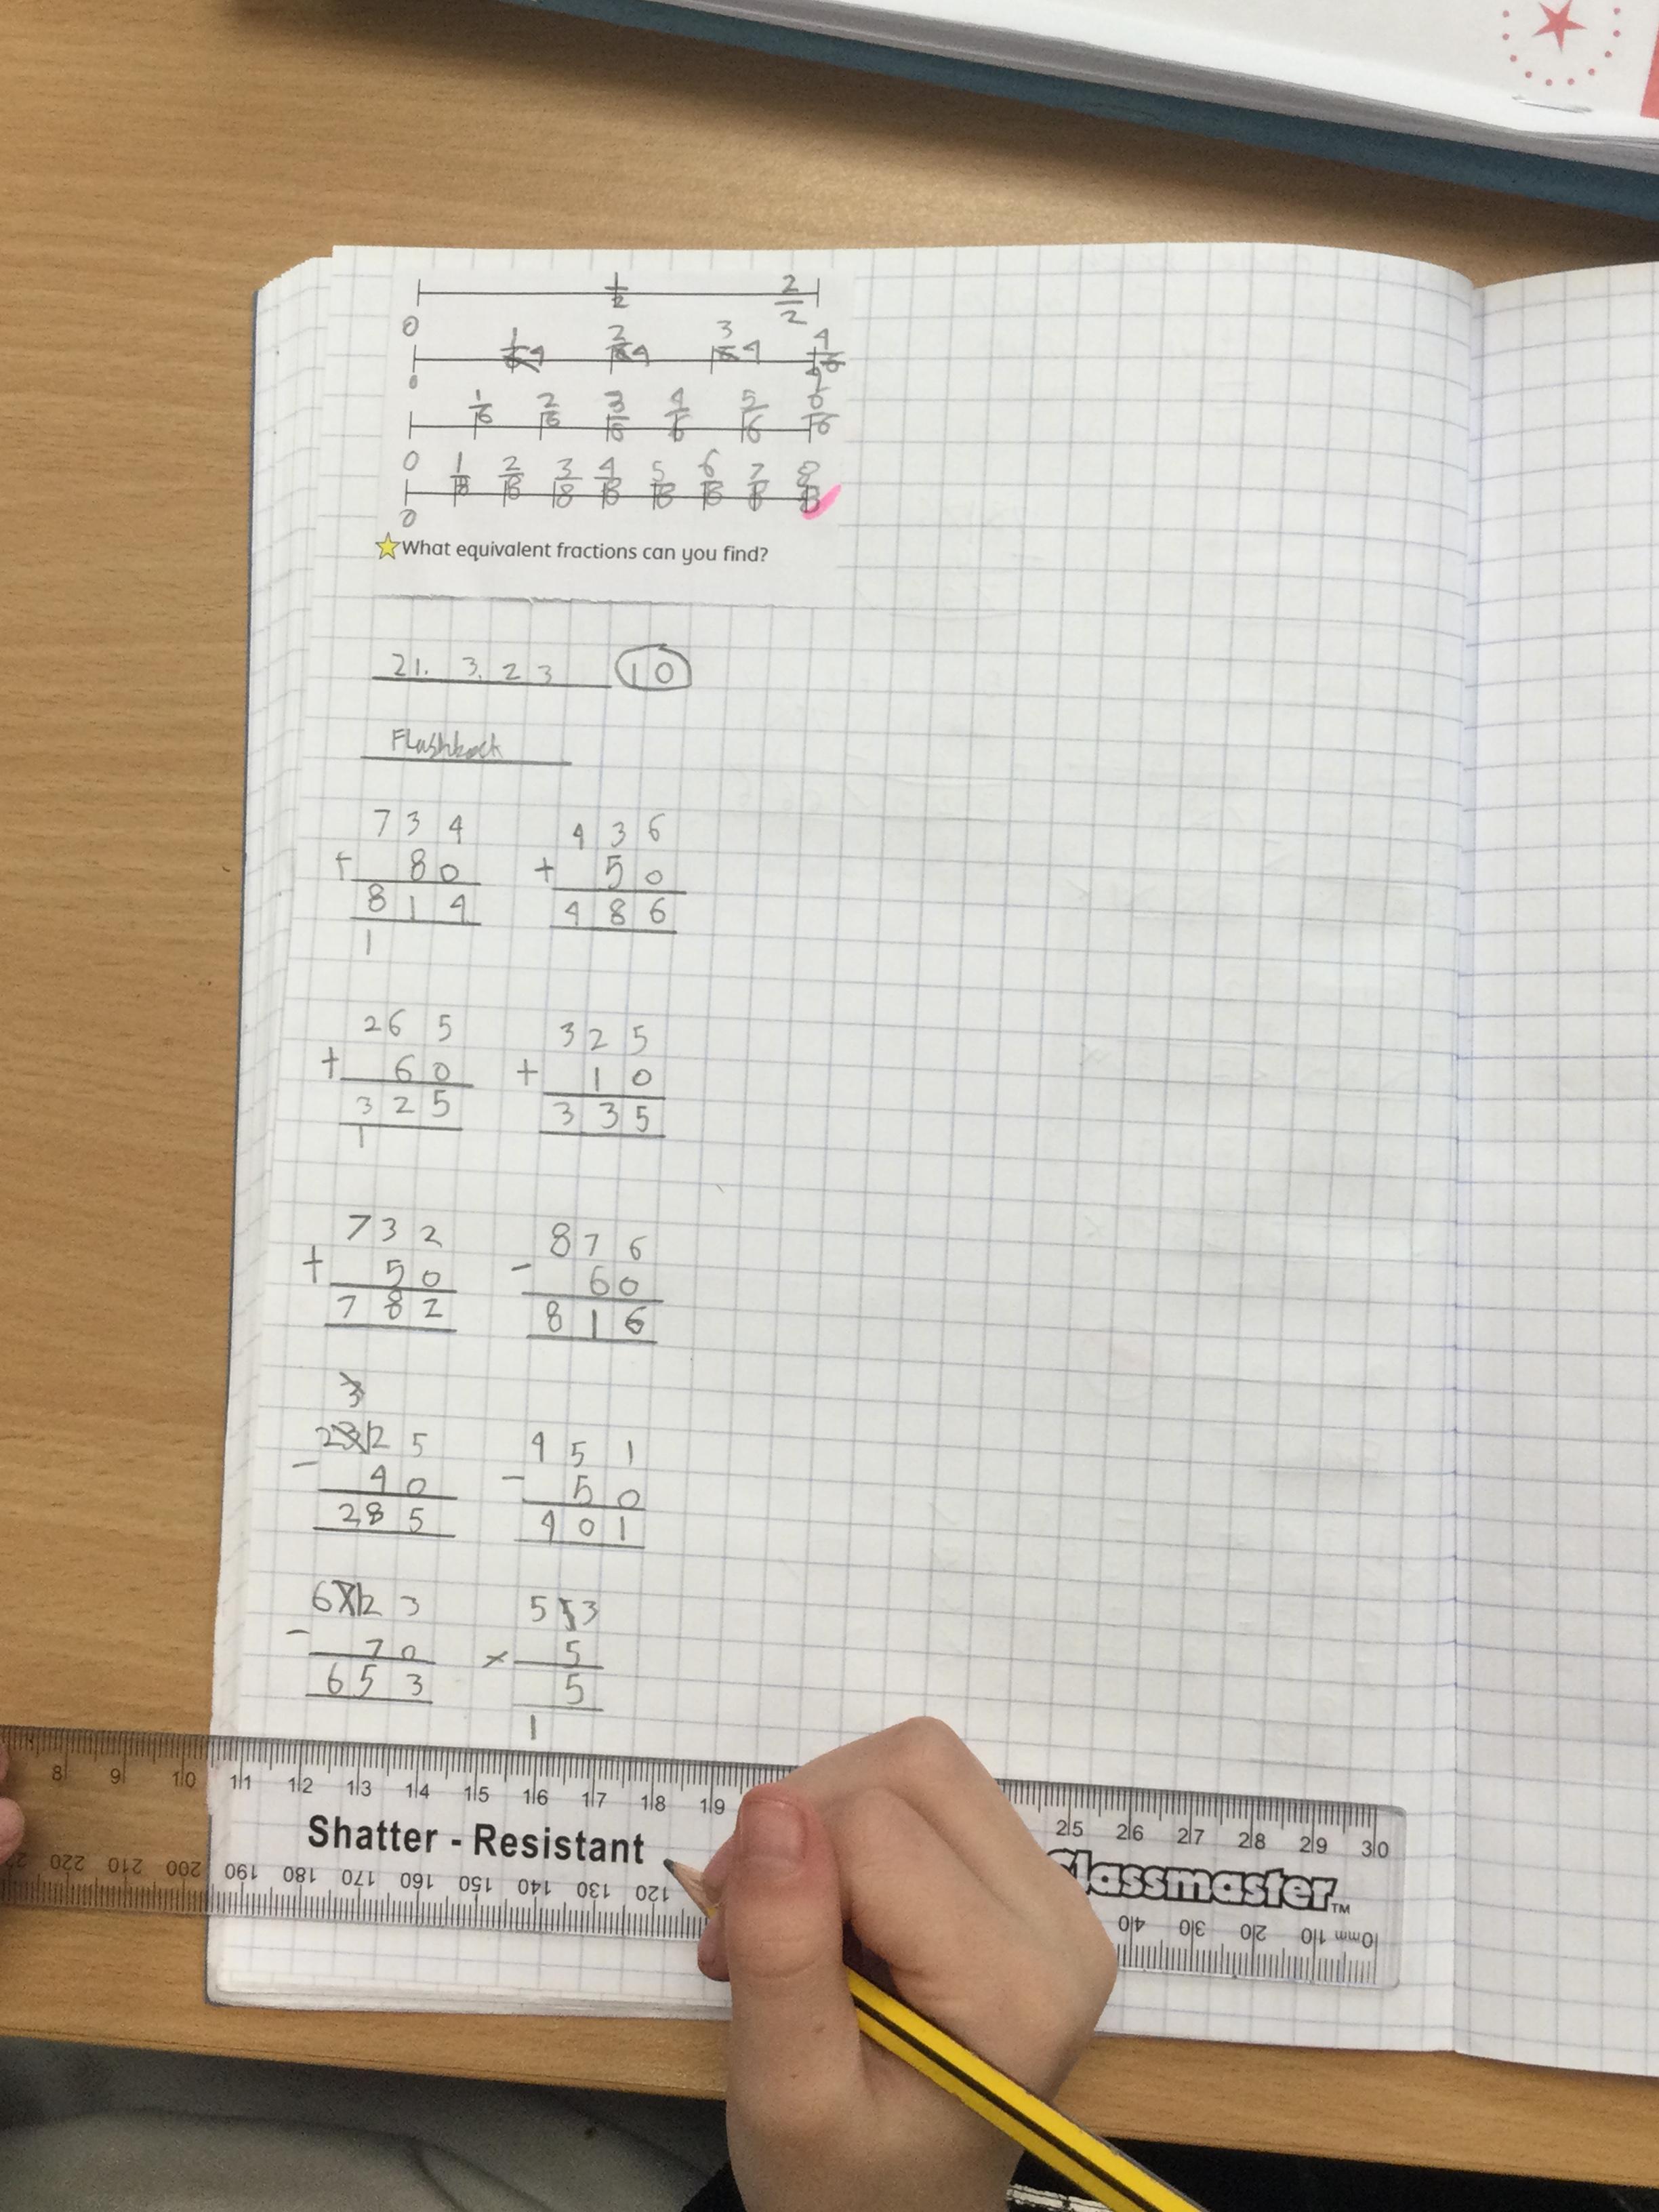 1/2 2/2
0
1/4 2/4 3/4 4/4
0
1/6 2/6 3/6 4/6 5/6 6/6
0
1/8 2/8 3/8 4/8 5/8 6/8 7/8 8/8
0
What equivalent fractions can you find?
21. 3. 23 10
Flashback
7 3 4 4 3 6
+ 8 0 + 5 0
8 1 4 4 8 6
1
2 6 5 3 2 5
+ 6 0 + 1 0
3 2 5 3 3 5
1
7 3 2 8 7 6
+ 5 0 - 6 0
7 8 2 8 1 6
3
2 3 12 5 4 5 1
- 4 0 - 5 0
2 8 5 4 0 1
6 7 12 3 5 3
- 7 0 × 5
6 5 3 5
1
8 9 10 11 12 13 14 15 16 17 18 19 25 26 27 28 29 30
Shatter - Resistant
Classmaster™
220 210 200 190 180 170 160 150 140 130 120 40 30 20 10mm